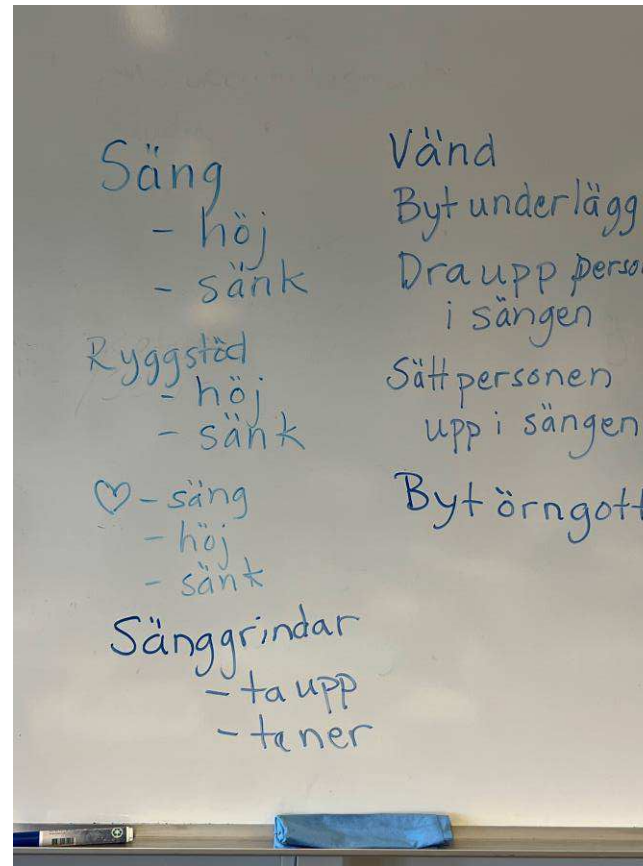 Säng
- höj
- sänk
Ryggstöd
- höj
- sänk
♡ - säng
- höj
- sänk
Sänggrindar
- ta upp
- ta ner
Vänd
Byt underlägg
Dra upp perso
i sängen
Sätt personen
upp i sängen
Byt örngott